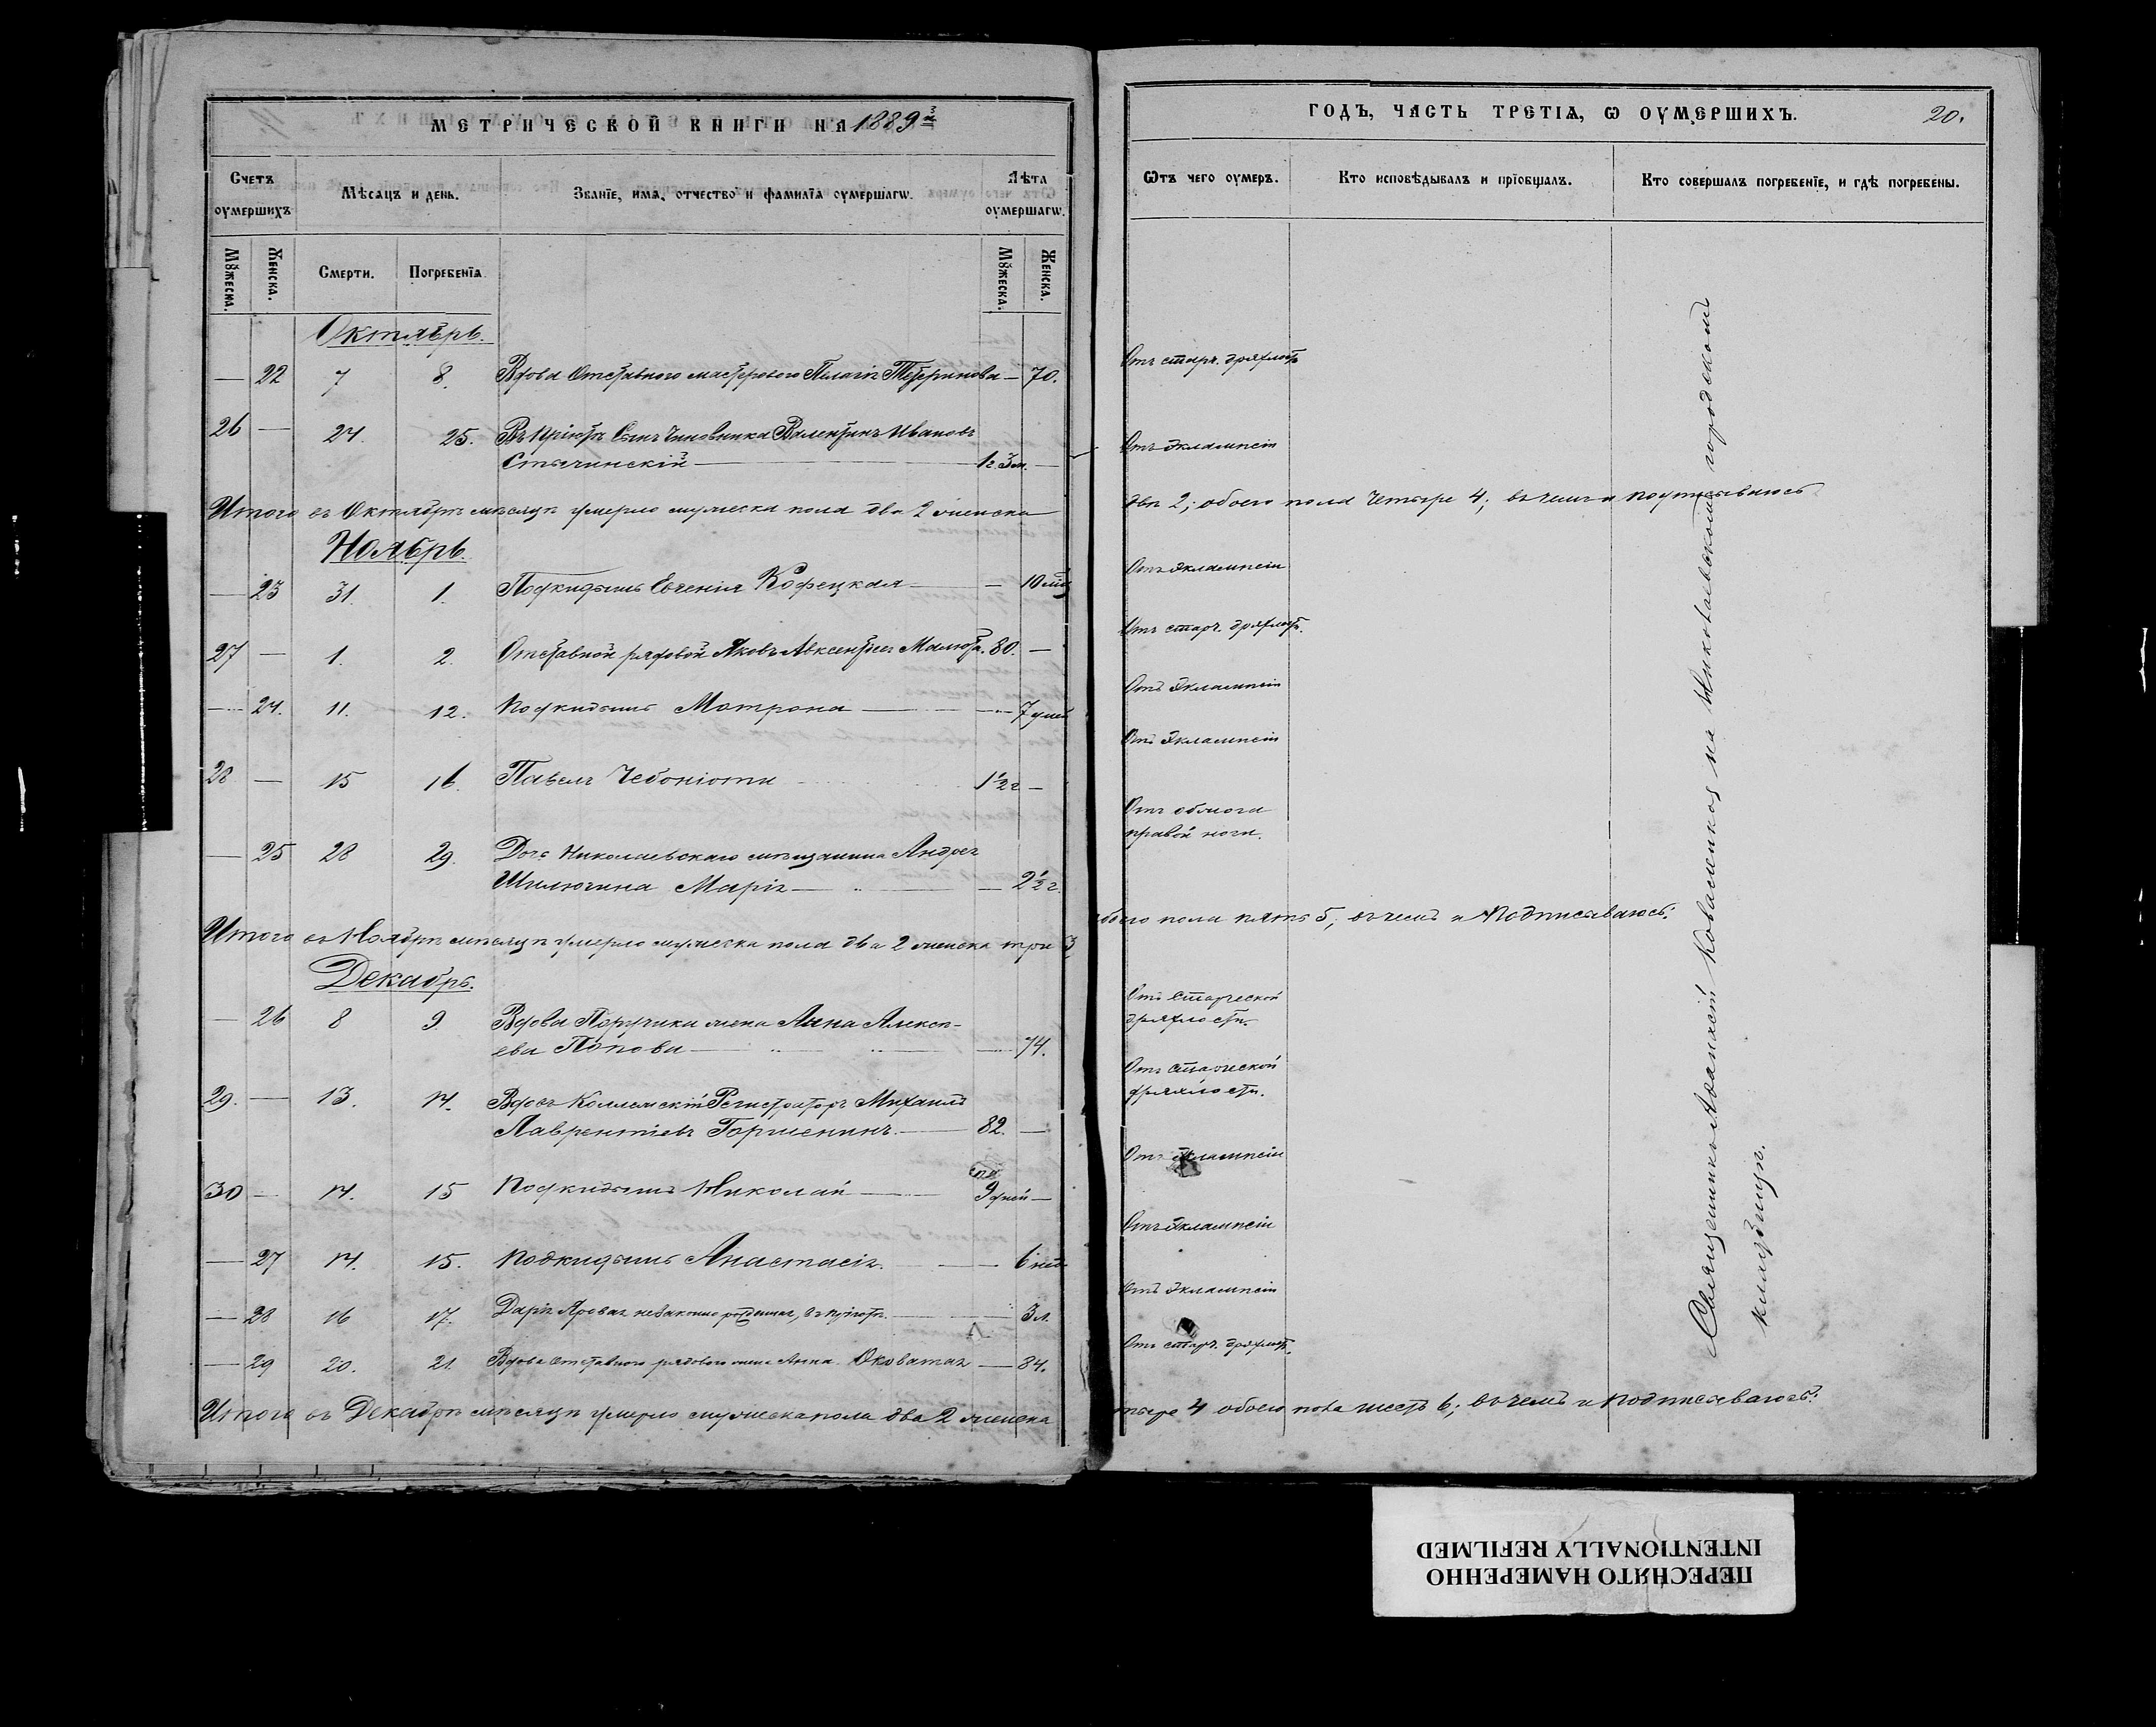 МЕТРИЧЕСКОЙ КНИГИ НА 1889й
Счетъ оумершихъ
Мѣсяцъ и день.
Званіе, имя, отчество и фамилія оумершагѡ.
Лѣта оумершагѡ.
Мужеска.
Женска.
Смерти.
Погребенія
Мужеска.
Женска.
Октябрь.
— 22 7 8. Вдова Отставного мастерового Пелагія — 70.
26 — 24. 25. Въ пріютѣ Сынъ Чиновника Валентинъ Ивановъ
1г. 3м. —
Итого въ Октябрѣ мѣсяцѣ умерло мужеска пола два 2 женска
Ноябрь.
— 23 31. 1. Подкидышъ Евгенія — 10 мѣс
27 — 1. 2. Отставной рядовой Яковъ Авксентіевъ 80. —
— 24. 11. 12. Подкидышъ Матрона — 7 дней
28 — 15 16. Павелъ 1½ г —
— 25 28 29. Дочь Николаевскаго мѣщанина Андрея
Марія — 2½ г.
Итого въ Ноябрѣ мѣсяцѣ умерло мужеска пола два 2 женска три 3
Декабрь.
— 26 8 9 Вдова Поручика жена Анна Алексѣ-
ева Попова — 74.
29. — 13. 14. Вдовъ Коллежскій Регистраторъ Михаилъ
Лаврентіевъ 82. —
30 — 14. 15 Подкидышъ Николай 9 дней —
— 27 14. 15. Подкидышъ Анастасія. — 6 нед.
— 28 16 17. Дарія незаконно рожденная, въ пріютѣ. — 3 м.
— 29 20. 21. Вдова Отставного рядового жена Анна — 84.
Итого въ Декабрѣ мѣсяцѣ умерло мужеска пола два 2 женска
ГОДЪ, ЧАСТЬ ТРЕТІѦ, Ѡ ОУМЕРШИХЪ.
20.
Ѿтъ чего оумеръ.
Кто исповѣдывалъ и пріобщалъ.
Кто совершалъ погребеніе, и гдѣ погребены.
Отъ старч. дряхлост.
Отъ Эклампсіи
двѣ 2; обоего пола четыре 4; въ чемъ и подписываюсь
Отъ Эклампсіи
Отъ старч. дряхлост.
Отъ Эклампсіи
Отъ Эклампсіи
Отъ обжога
правой ноги.
обоего пола пять 5; въ чемъ и Подписываюсь:
Отъ Старческой
дряхлости.
Отъ старческой
дряхлости.
Отъ Эклампсіи
Отъ Эклампсіи
Отъ Эклампсіи
Отъ старч. дряхлост.
тыре 4 обоего пола шесть 6; въ чемъ и подписываюсь:
Священникъ Аѳанасій Коваленко, на Николаевскомъ городскомъ
кладбищѣ.
ПЕРЕСНЯТО НАМЕРЕННО
INTENTIONALLY REFILMED